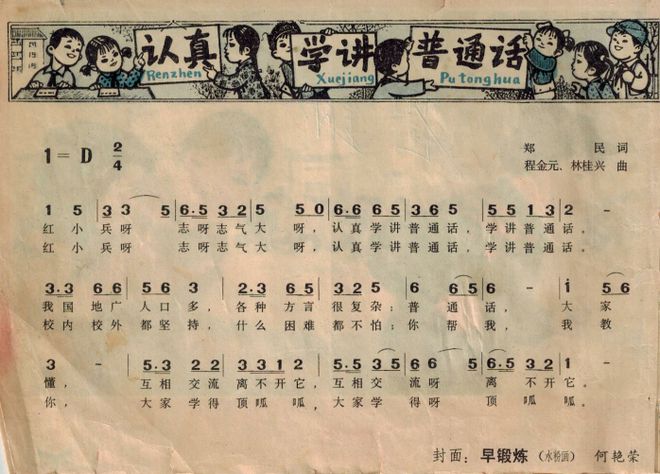 认真 学讲 普通话
Renzhen Xuejiang Putonghua
1=D 2/4
郑 民 词
程金元、林桂兴 曲
1 5 | 3 3 5 | 6·5 3 2 | 5 5 0 | 6·6 6 5 | 3 6 5 | 5 5 1 3 | 2 - |
红 小 兵 呀 志 呀 志 气 大 呀，认 真 学 讲 普 通 话，学 讲 普 通 话。
红 小 兵 呀 志 呀 志 气 大 呀，认 真 学 讲 普 通 话，学 讲 普 通 话。
3·3 6 6 | 5 6 3 | 2·3 6 5 | 5 1 3 | 6 6 5 | 6 - | i 5 6 |
我 国 地 广 人 口 多，各 种 方 言 很 复 杂；普 通 话， 大 家
校 内 校 外 都 坚 持，什 么 困 难 都 不 怕；你 帮 我， 我 教
3 - | 5·3 2 2 | 3 3 1 2 | 5·5 3 5 | 6 6 5 | 6·5 3 2 | 1 - |
懂， 互 相 交 流 离 不 开 它，互 相 交 流 呀 离 不 开 它。
你， 大 家 学 得 顶 呱 呱，大 家 学 得 顶 呱 呱，顶 呱 呱。
封面：早锻炼（水粉画） 何艳荣